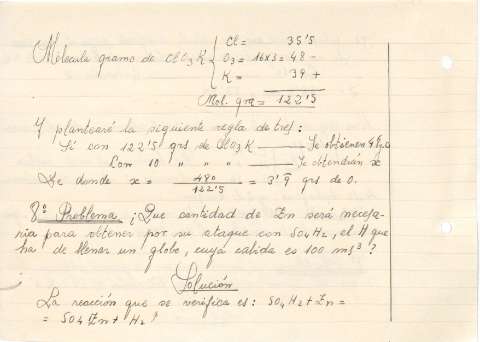 Cl = 35'5
Molécula gramo de ClO3K O3 = 16x3 = 48 -
K = 39 +
Mol. gra = 122'5
Y plantearé la siguiente regla de tres:
Si con 122'5 grs de ClO3K — Se obtienen 48 g. O
Con 10 " " " — Se obtendrán x
De donde x = 480 / 122'5 = 3'9 grs de O.
8º Problema ¿Que cantidad de Zn será necesa-
ria para obtener por su ataque con SO4H2, el H que
ha de llenar un globo, cuya cabida es 100 ms³?
Solución
La reacción que se verifica es: SO4H2 + Zn =
= SO4Zn + H2